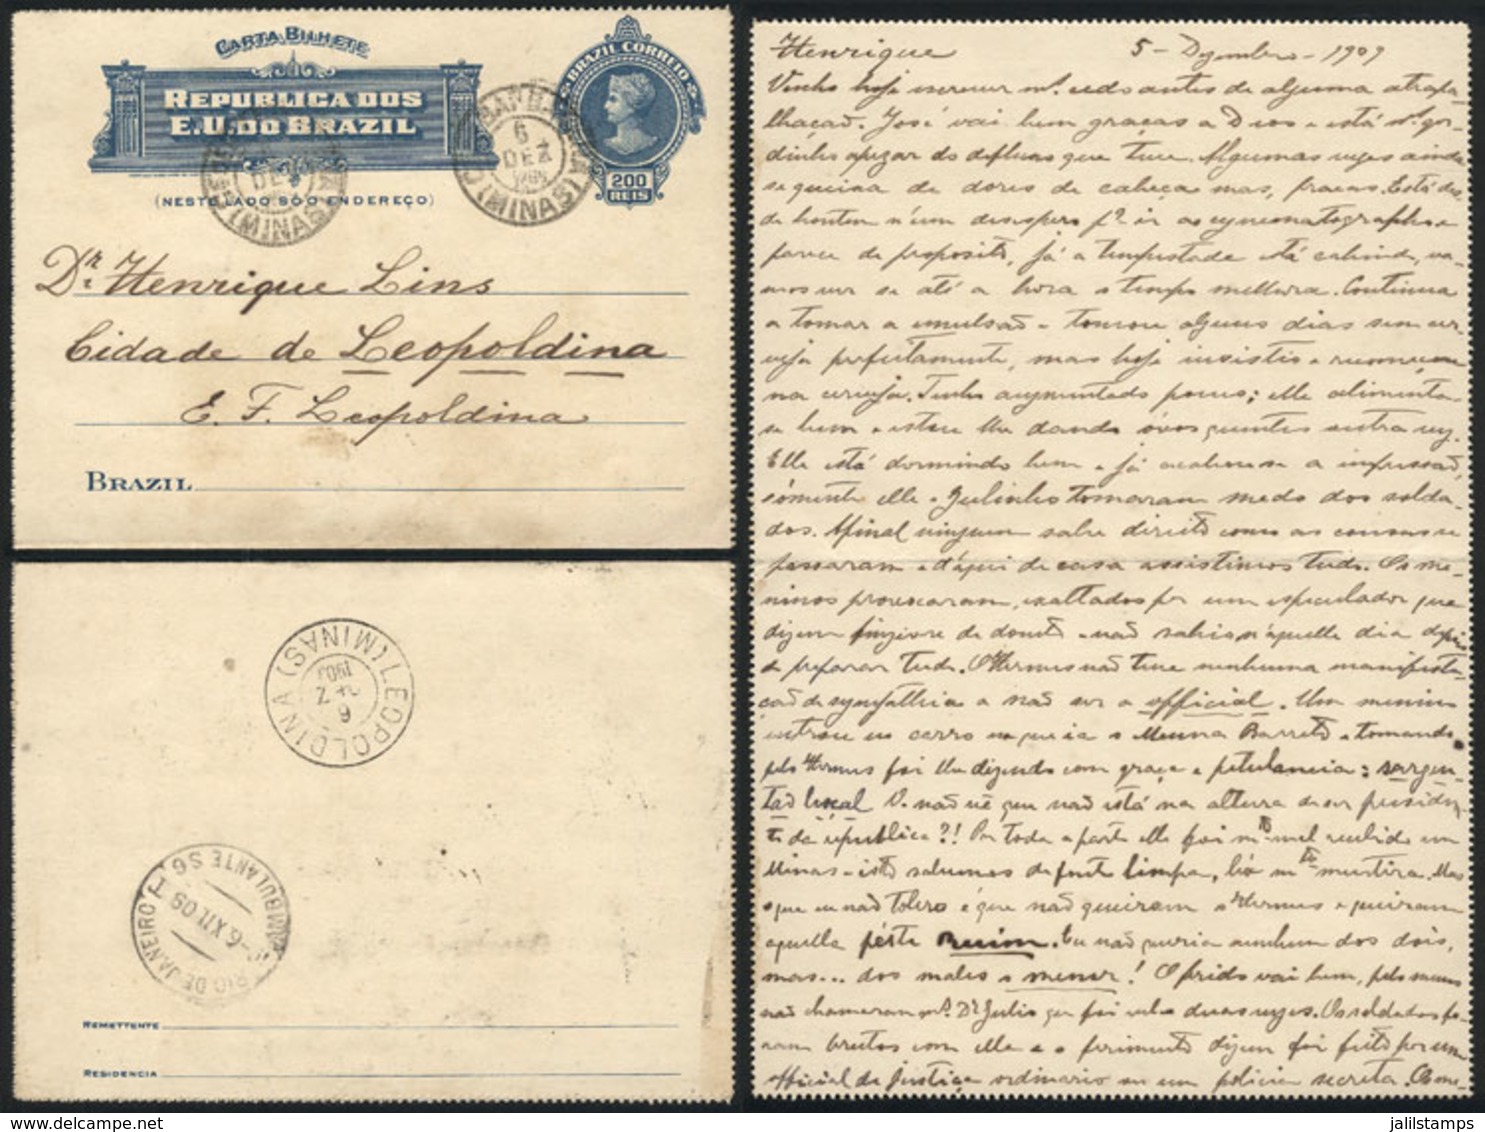 CARTA BILHETE
REPUBLICA DOS
E.U. DO BRAZIL
(NESTE LADO SÓ O ENDEREÇO)
BRAZIL CORREIO
200
REIS
6
DEZ
(MINAS)
DEZ
(MINAS)
Dr. Henrique Lins
Cidade de Leopoldina
E. F. Leopoldina
BRAZIL
LEOPOLDINA (MINAS)
6
1909
AMBULANTE S6
-6 XII 09
RIO DE JANEIRO
REMETTENTE
RESIDENCIA
Henrique 5 - Dezembro - 1909
Venho hoje escrever mto. cedo antes de alguma atrapa-
lhação. José vai bem graças a Deos e está gor-
dinho apezar do defluxo que teve. Algumas vezes ainda
se queixa de dores de cabeça mas, fracas. Está des-
de hontem n'um desespero pa. ir ao cynematographo e
parece de proposito, já a tempestade está cahindo, va-
mos ver se até a hora o tempo melhora. Continua
a tomar a emulsão e tomou alguns dias sem cer-
veja perfeitamente, mas hoje insistio e recomeçou
na cerveja. Tenho augmentado pouco; elle alimenta-
se bem e estou lhe dando óvos quentes outra vez.
Elle está dormindo bem e já acabou-se a impressão,
sómente elle e Julinho tomaram medo dos solda-
dos. Afinal ninguem sabe direito como as cousas se
passaram e d'aqui de casa assistimos tudo. Os me-
ninos provocaram, exaltados por um especulador que
dizem fingiu-se de doente e não sahio n'aquelle dia depois
de preparar tudo. O Hermes não teve nenhuma manifesta-
ção de sympathia a não ser a official. Um menino
entrou no carro em que ia o Menna Barreto e tomando
pelo Hermes foi lhe dizendo com graça e petulancia: sargen-
tão boçal V. não vê que não está na altura de ser presiden-
te da republica?! Por toda a parte elle foi mto. mal recebido em
Minas - isto sabemos de fonte limpa, lá mta. mentira. Mas
o que eu não tolero é que não queiram o Hermes e queiram
aquella péste Ruim. Eu não queria nenhum dos dois,
mas... dos males o menor! O ferido vai bem, pelo menos
não chamaram mais Dr. Julio que foi vel-o duas vezes. Os soldados fo-
ram brutos com elle e o ferimento dizem foi feito por um
official de Justiça ordinario ou um policia secreta. Os me-
jalilstamps